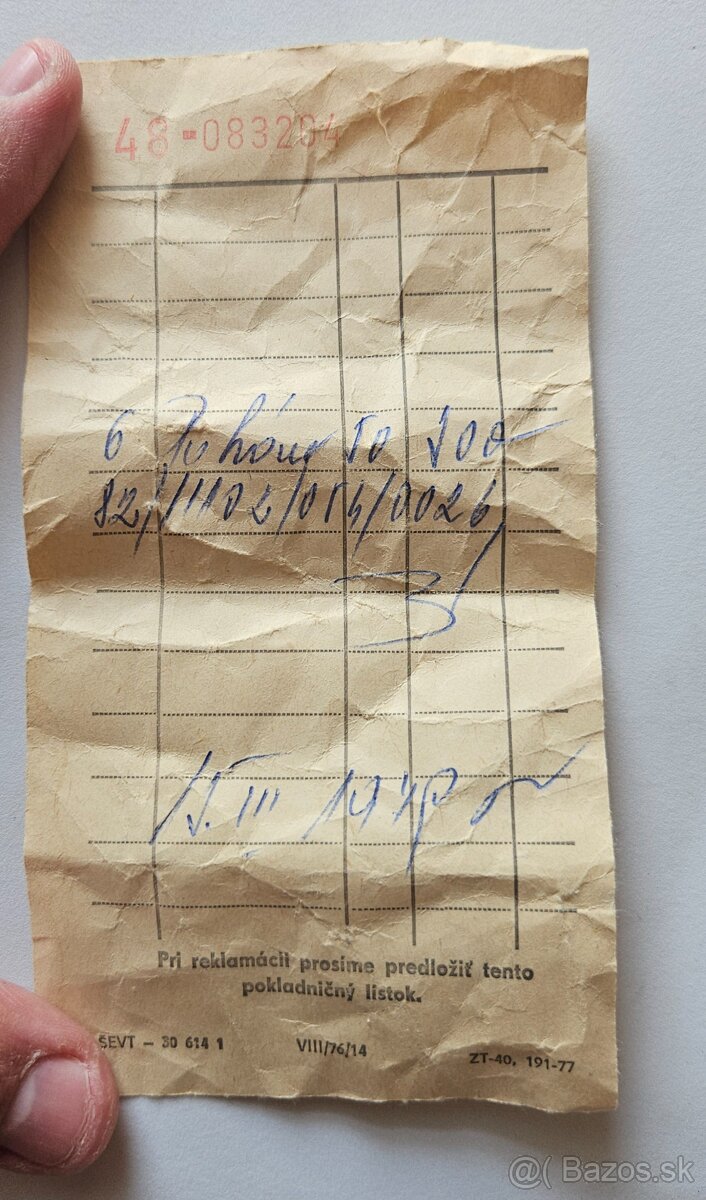 48-083204
6 Pohárov 50 300-
82/11102/014/0026
15. III 1978
Pri reklamácii prosíme predložiť tento
pokladničný lístok.
ŠEVT – 30 614 1 VIII/76/14 ZT-40, 191-77
@( Bazos.sk